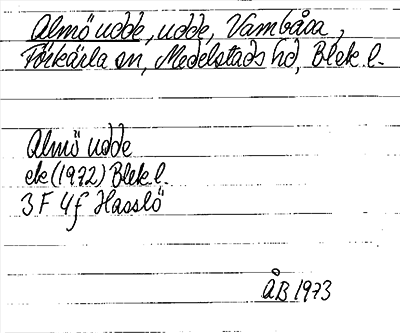 Almö udde, udde, Vambåsa,
Förkärla sn, Medelstads hd, Blek. l.
Almö udde
ek (1972) Blek l.
3 F 4f Hasslö
ÅB 1973